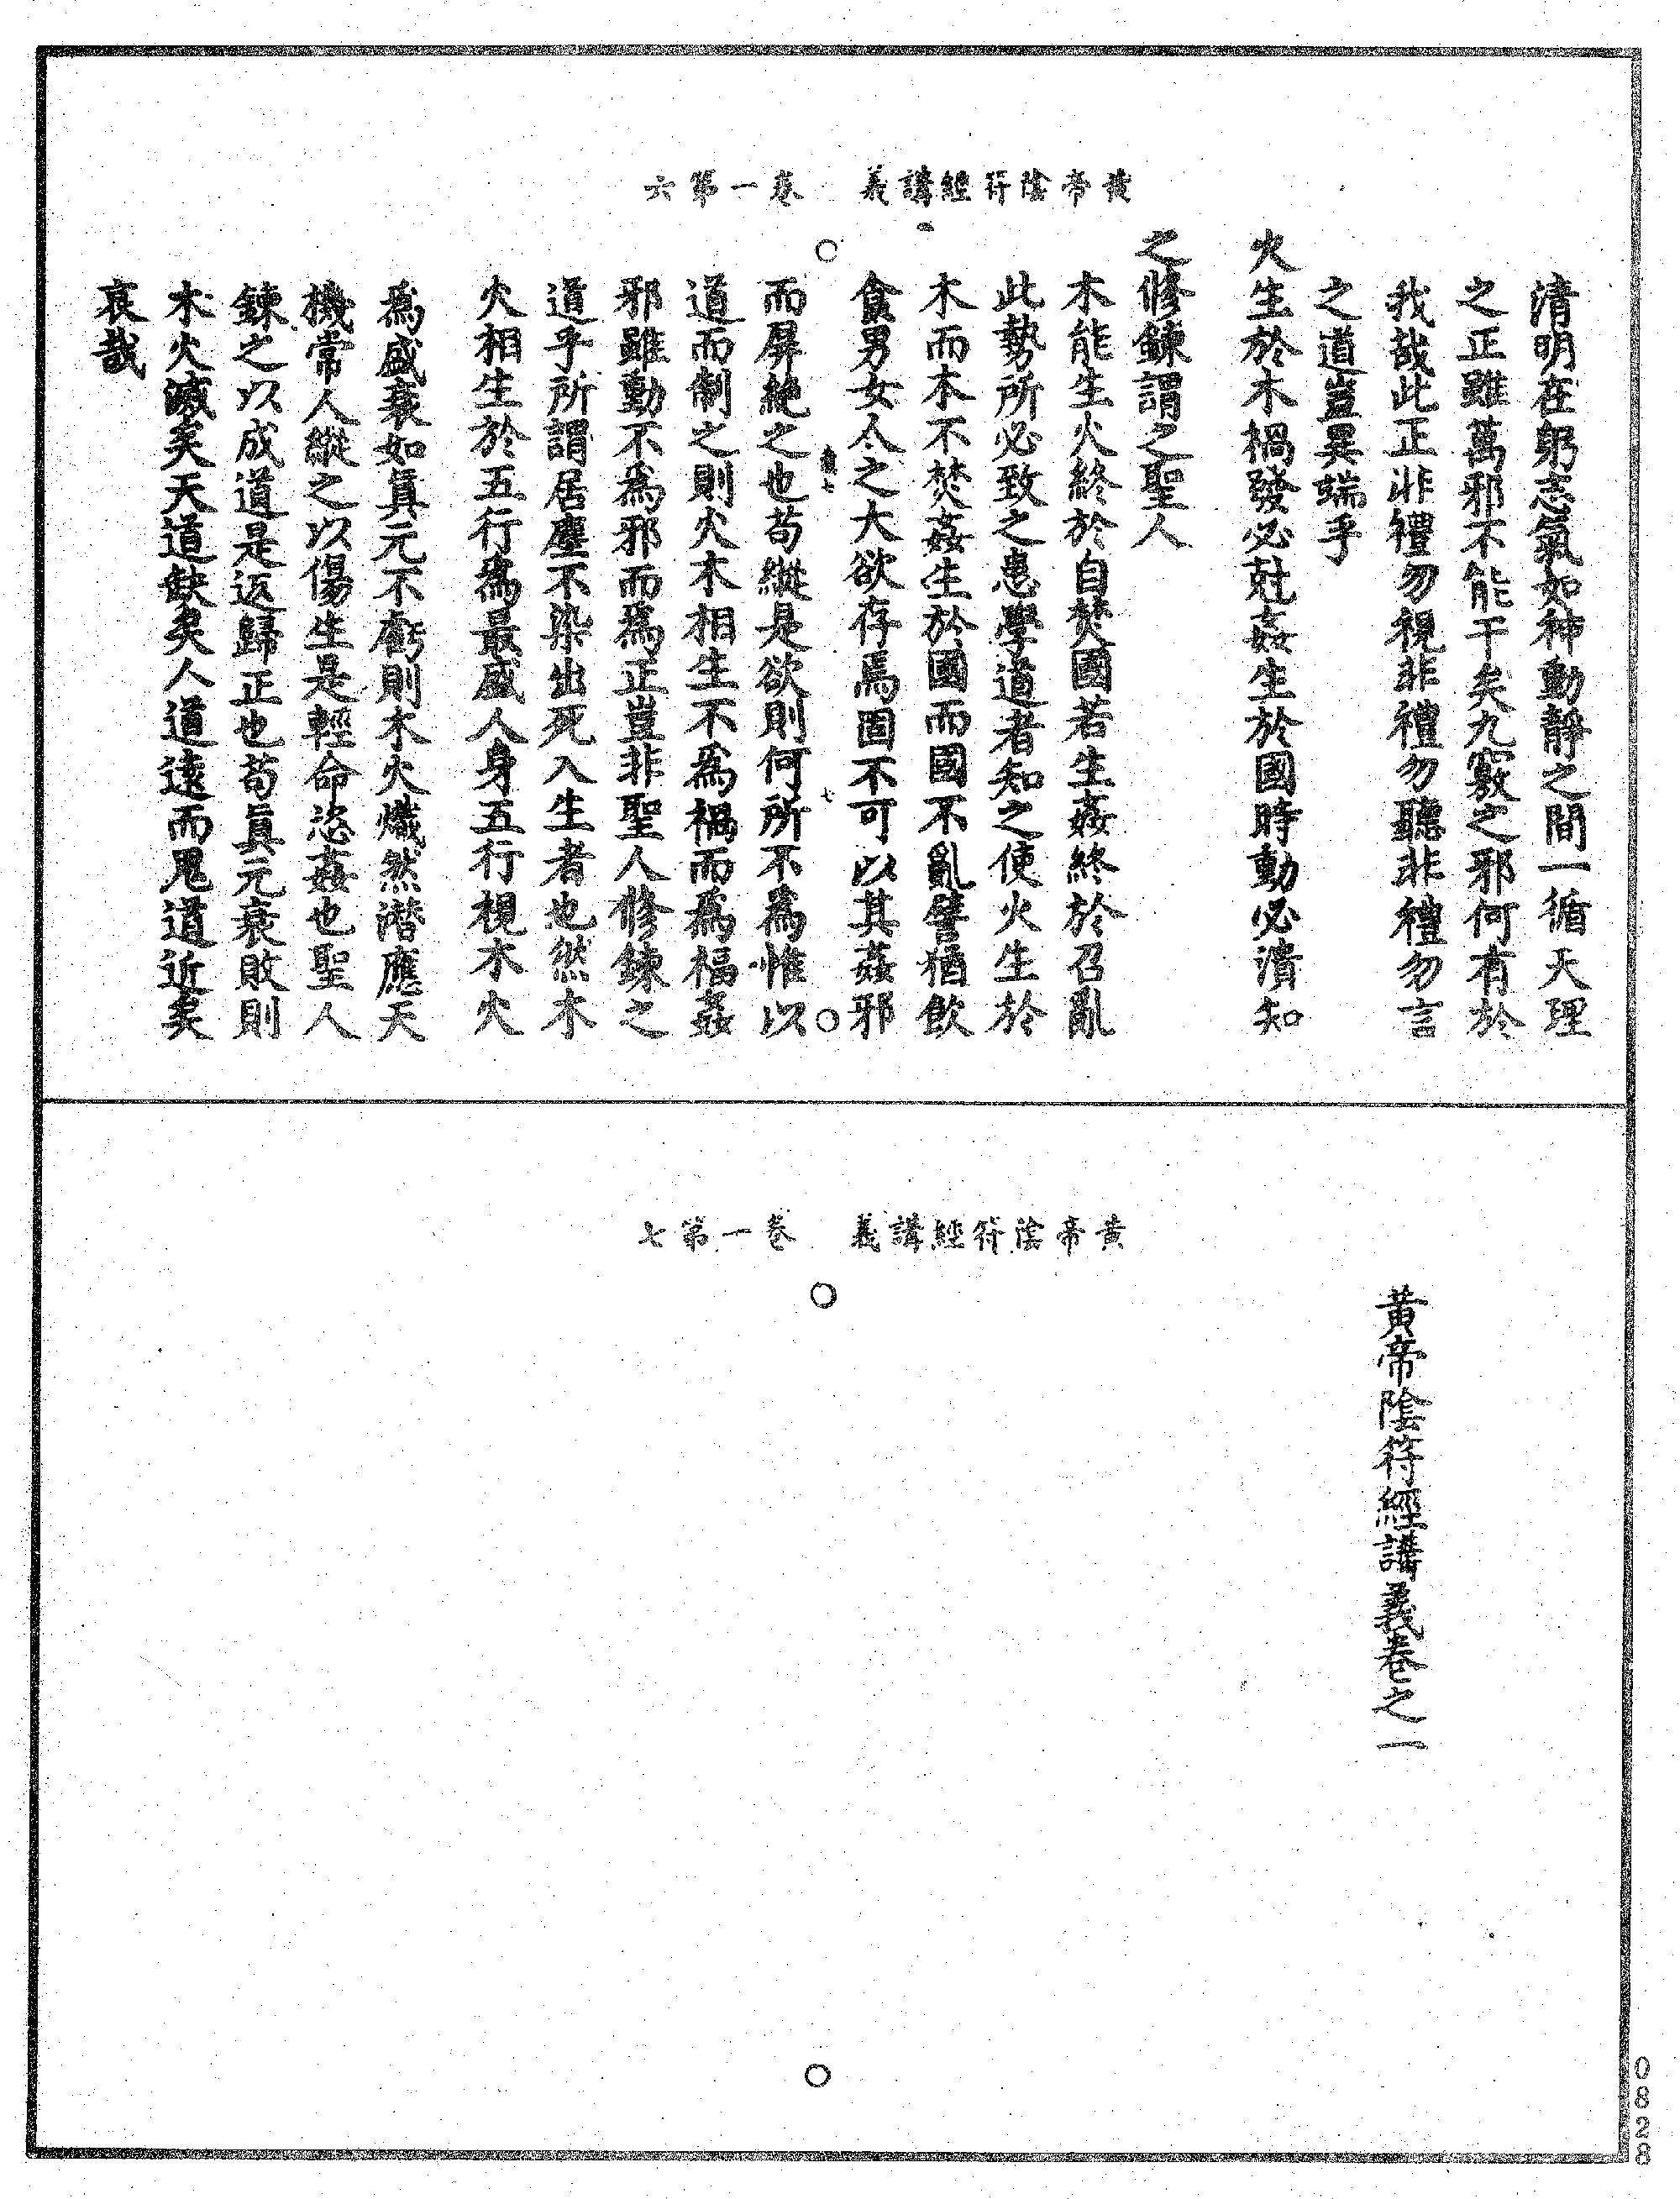 黃帝陰符經講義　卷一第六
清明在躬志氣如神動靜之間一循天理
之正雖萬邪不能干矣九竅之邪何有於
我哉此正非禮勿視非禮勿聽非禮勿言
之道豈異端乎
火生於木禍發必尅姦生於國時動必潰知
之修鍊謂之聖人
木能生火終於自焚國若生姦終於召亂
此勢所必致之患學道者知之使火生於
木而木不焚姦生於國而國不亂譬猶飲
食男女人之大欲存焉固不可以其姦邪
而屏絕之也苟縱是欲則何所不為惟以
道而制之則火木相生不為禍而為福姦
邪雖動不為邪而為正豈非聖人修鍊之
道乎所謂居塵不染出死入生者也然木
火相生於五行為最盛人身五行視木火
為盛衰如眞元不虧則木火熾然潛應天
機常人縱之以傷生是輕命恣姦也聖人
鍊之以成道是返歸正也苟眞元衰敗則
木火滅矣天道缺矣人道遠而鬼道近矣
哀哉
黃帝陰符經講義　卷一第七
黃帝陰符經講義卷之一
0828